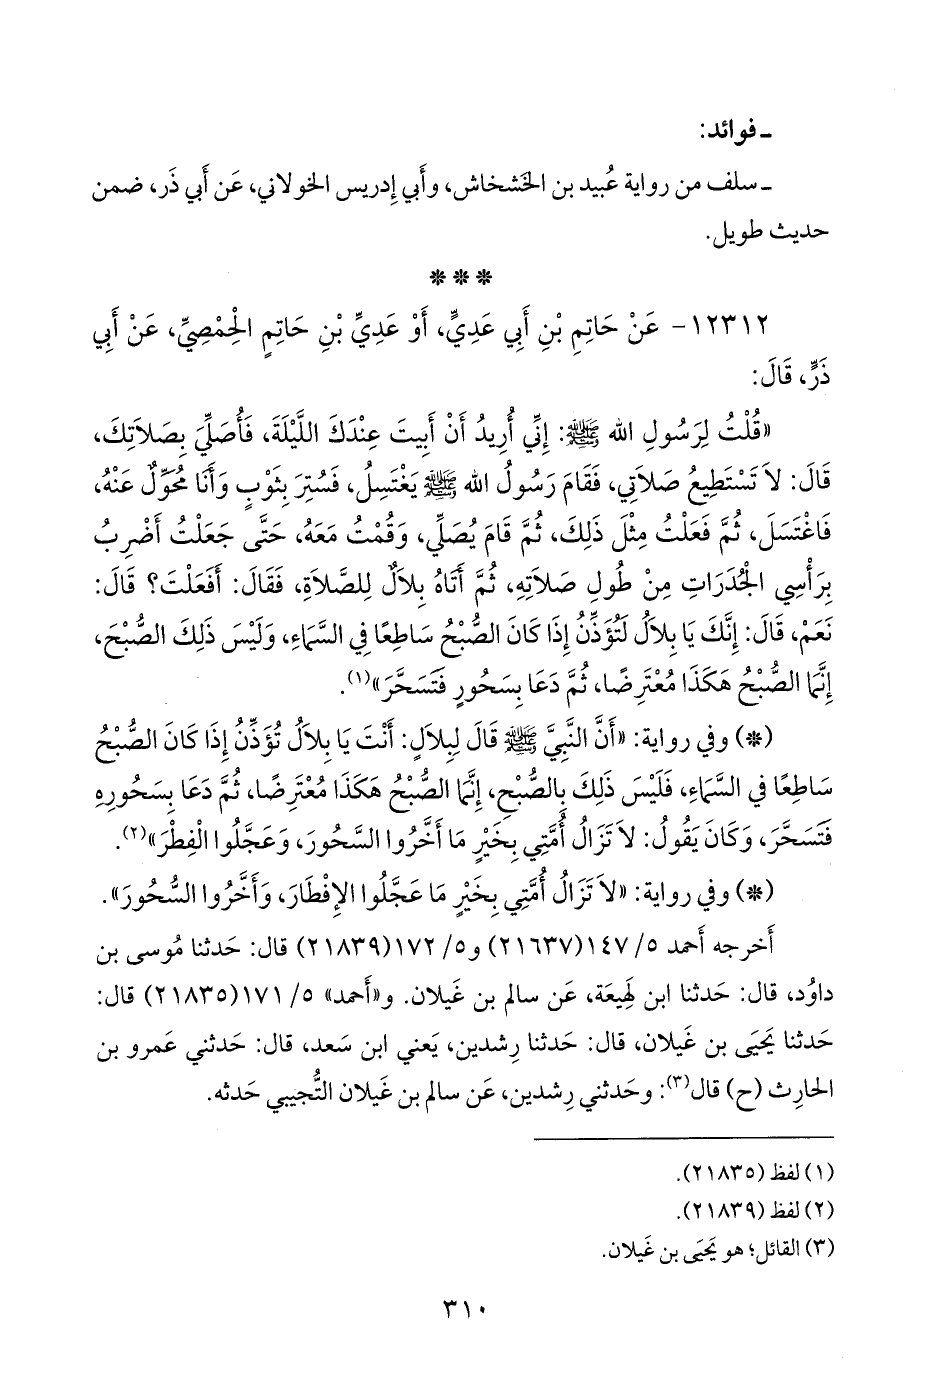 ـ فوائد:
ـ سلف من رواية عُبيد بن الخَشخاش، وأَبي إِدريس الخولاني، عَن أَبي ذَر، ضمن
حديث طويل.
* * *
١٢٣١٢- عَنْ حَاتِمِ بْنِ أَبِي عَدِيٍّ، أَوْ عَدِيِّ بْنِ حَاتِمٍ الْحِمْصِيِّ، عَنْ أَبِي
ذَرٍّ، قَالَ:
«قُلْتُ لِرَسُولِ الله ﷺ: إِنِّي أُرِيدُ أَنْ أَبِيتَ عِنْدَكَ اللَّيْلَةَ، فَأُصَلِّيَ بِصَلاَتِكَ،
قَالَ: لاَ تَسْتَطِيعُ صَلاَتِي، فَقَامَ رَسُولُ الله ﷺ يَغْتَسِلُ، فَسُتِرَ بِثَوْبٍ وَأَنَا مُحَوِّلٌ عَنْهُ،
فَاغْتَسَلَ، ثُمَّ فَعَلْتُ مِثْلَ ذَلِكَ، ثُمَّ قَامَ يُصَلِّي، وَقُمْتُ مَعَهُ، حَتَّى جَعَلْتُ أَضْرِبُ
بِرَأْسِي الْجُدَرَاتِ مِنْ طُولِ صَلاَتِهِ، ثُمَّ أَتَاهُ بِلاَلٌ لِلصَّلاَةِ، فَقَالَ: أَفَعَلْتَ؟ قَالَ:
نَعَمْ، قَالَ: إِنَّكَ يَا بِلاَلُ لَتُؤَذِّنُ إِذَا كَانَ الصُّبْحُ سَاطِعًا فِي السَّمَاءِ، وَلَيْسَ ذَلِكَ الصُّبْحَ،
إِنَّمَا الصُّبْحُ هَكَذَا مُعْتَرِضًا، ثُمَّ دَعَا بِسَحُورٍ فَتَسَحَّرَ»(١).
(*) وفي رواية: «أَنَّ النَّبِيَّ ﷺ قَالَ لِبِلاَلٍ: أَنْتَ يَا بِلاَلُ تُؤَذِّنُ إِذَا كَانَ الصُّبْحُ
سَاطِعًا فِي السَّمَاءِ، فَلَيْسَ ذَلِكَ بِالصُّبْحِ، إِنَّمَا الصُّبْحُ هَكَذَا مُعْتَرِضًا، ثُمَّ دَعَا بِسَحُورِهِ
فَتَسَحَّرَ، وَكَانَ يَقُولُ: لاَ تَزَالُ أُمَّتِي بِخَيْرٍ مَا أَخَّرُوا السَّحُورَ، وَعَجَّلُوا الْفِطْرَ»(٢).
(*) وفي رواية: «لاَ تَزَالُ أُمَّتِي بِخَيْرٍ مَا عَجَّلُوا الإِفْطَارَ، وَأَخَّرُوا السُّحُورَ».
أَخرجه أَحمد ٥/ ١٤٧(٢١٦٣٧) و٥/ ١٧٢(٢١٨٣٩) قال: حَدثنا مُوسى بن
داوُد، قال: حَدثنا ابن لَهِيعَة، عَن سالم بن غَيلان. و«أَحمد» ٥/ ١٧١(٢١٨٣٥) قال:
حَدثنا يَحيَى بن غَيلان، قال: حَدثنا رِشدين، يَعني ابن سَعد، قال: حَدثني عَمرو بن
الحارِث (ح) قال(٣): وحَدثني رِشدين، عَن سالم بن غَيلان التُّجيبي حَدثه.
(١) لفظ (٢١٨٣٥).
(٢) لفظ (٢١٨٣٩).
(٣) القائل؛ هو يَحيَى بن غَيلان.
٣١٠